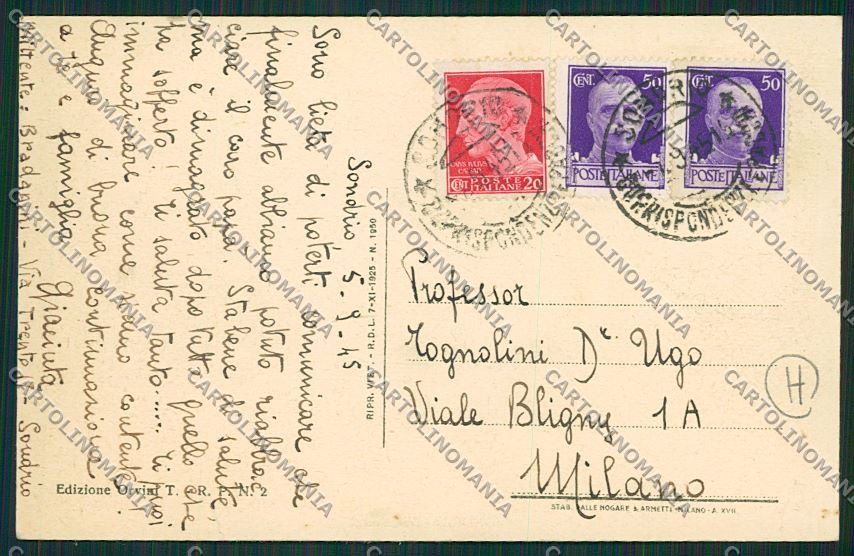 Sondrio 5-9-45
Sono lieta di poterti comunicare che
finalmente abbiamo potuto riabbrac
ciare il caro papà. Sta bene di salute,
ma è dimagrato, dopo tutto quello che
ha sofferto. Ti saluta tanto..... Ti puoi
immaginare come siamo contenti!
Auguri di buona continuazione
a te e famiglia.
Giacinta
Mittente: - Via Trento - Sondrio
RIPR. VIET. - R.D.L. 7-XI-1925 - N. 1950
Edizione Orvini T. - R. P. N. 2
CENT. POSTE ITALIANE 20
CENT. 50
POSTE ITALIANE
CENT. 50
POSTE ITALIANE
CORRISPONDENZE
CORRISPONDENZE
Professor
Tognolini Dr Ugo
Viale Bligny 1A
Milano
H
STAB. DALLE NOGARE & ARMETTI MILANO - A. XVII
CARTOLINOMANIA